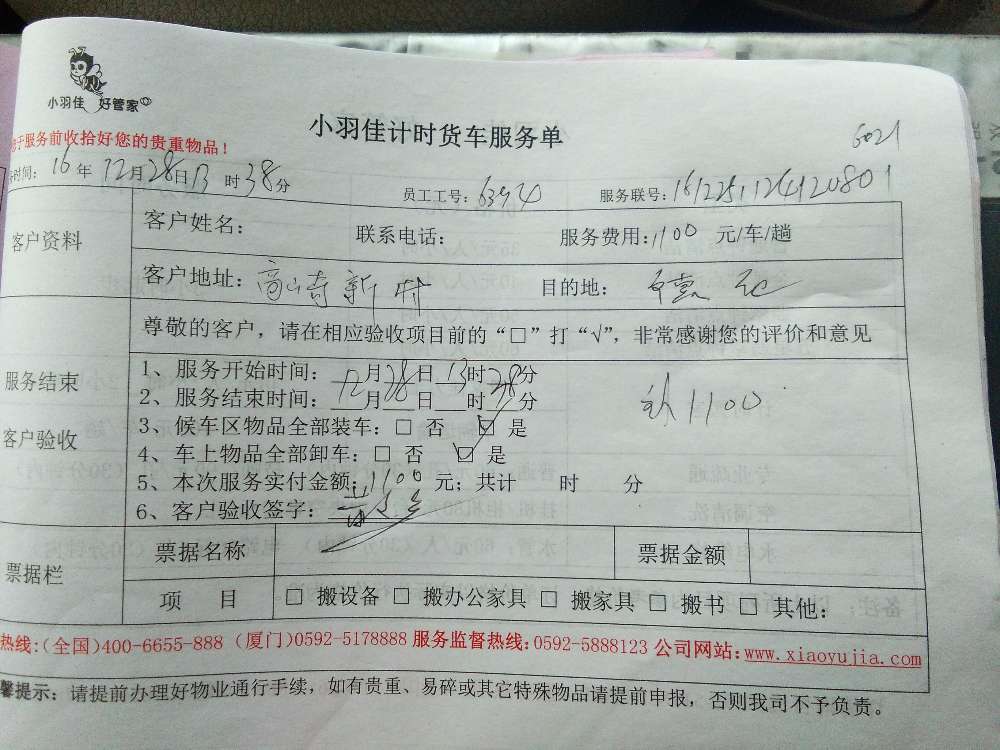 小羽佳 好管家
小羽佳计时货车服务单
于服务前收拾好您的贵重物品！
6021
时间：16年12月28日13时38分
员工工号：6394
服务联号：1612251124120801
客户资料
客户姓名：
联系电话：
服务费用：1100 元/车/趟
客户地址：高崎新村
目的地：
尊敬的客户，请在相应验收项目前的“□”打“√”，非常感谢您的评价和意见
服务结束
客户验收
1、服务开始时间：12月28日13时38分
2、服务结束时间：___月___日___时___分
3、候车区物品全部装车：□ 否 ☑ 是
4、车上物品全部卸车：□ 否 ☑ 是
5、本次服务实付金额：1100 元；共计 时 分
6、客户验收签字：
1100
票据栏
票据名称
票据金额
项 目
□ 搬设备 □ 搬办公家具 □ 搬家具 □ 搬书 □ 其他：
热线：(全国)400-6655-888 (厦门)0592-5178888 服务监督热线：0592-5888123 公司网站：www.xiaoyujia.com
馨提示：请提前办理好物业通行手续，如有贵重、易碎或其它特殊物品请提前申报，否则我司不予负责。